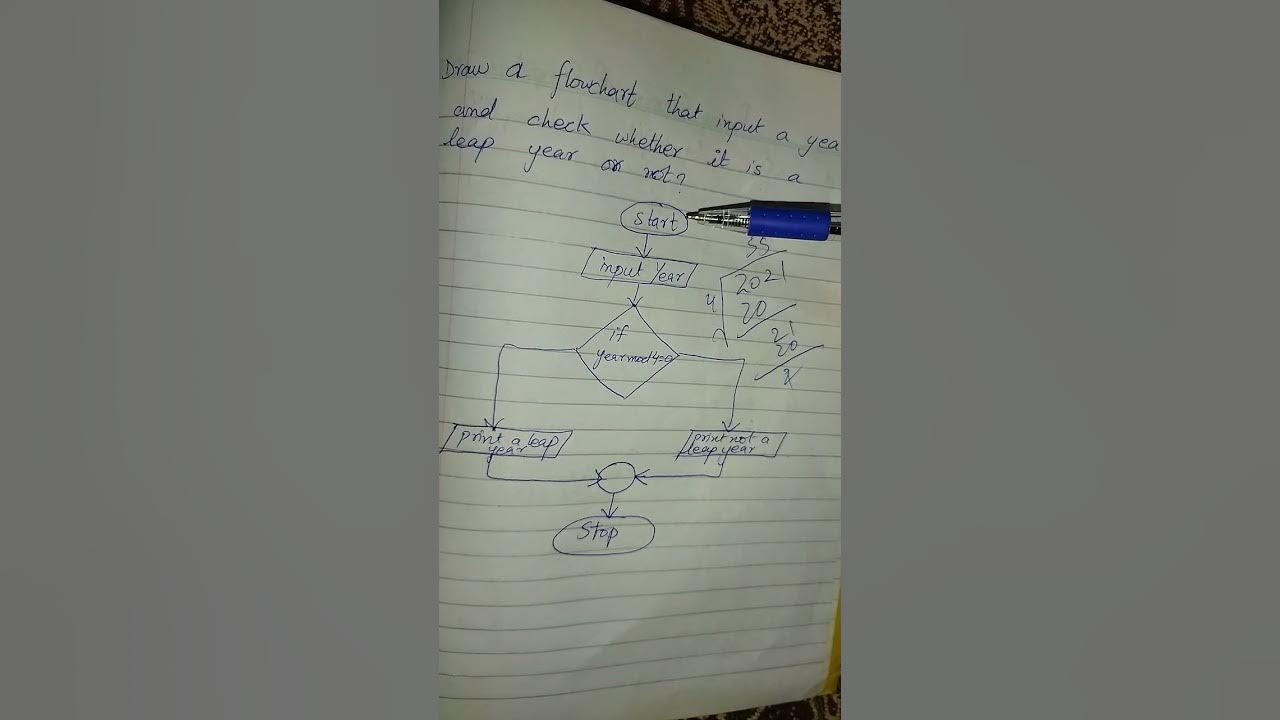 Draw a flowchart that input a yea
and check whether it is a
leap year or not?
Start
input Year
if
yearmod4=0
print a leap
year
print not a
leap year
Stop
4
2021
20
21
20